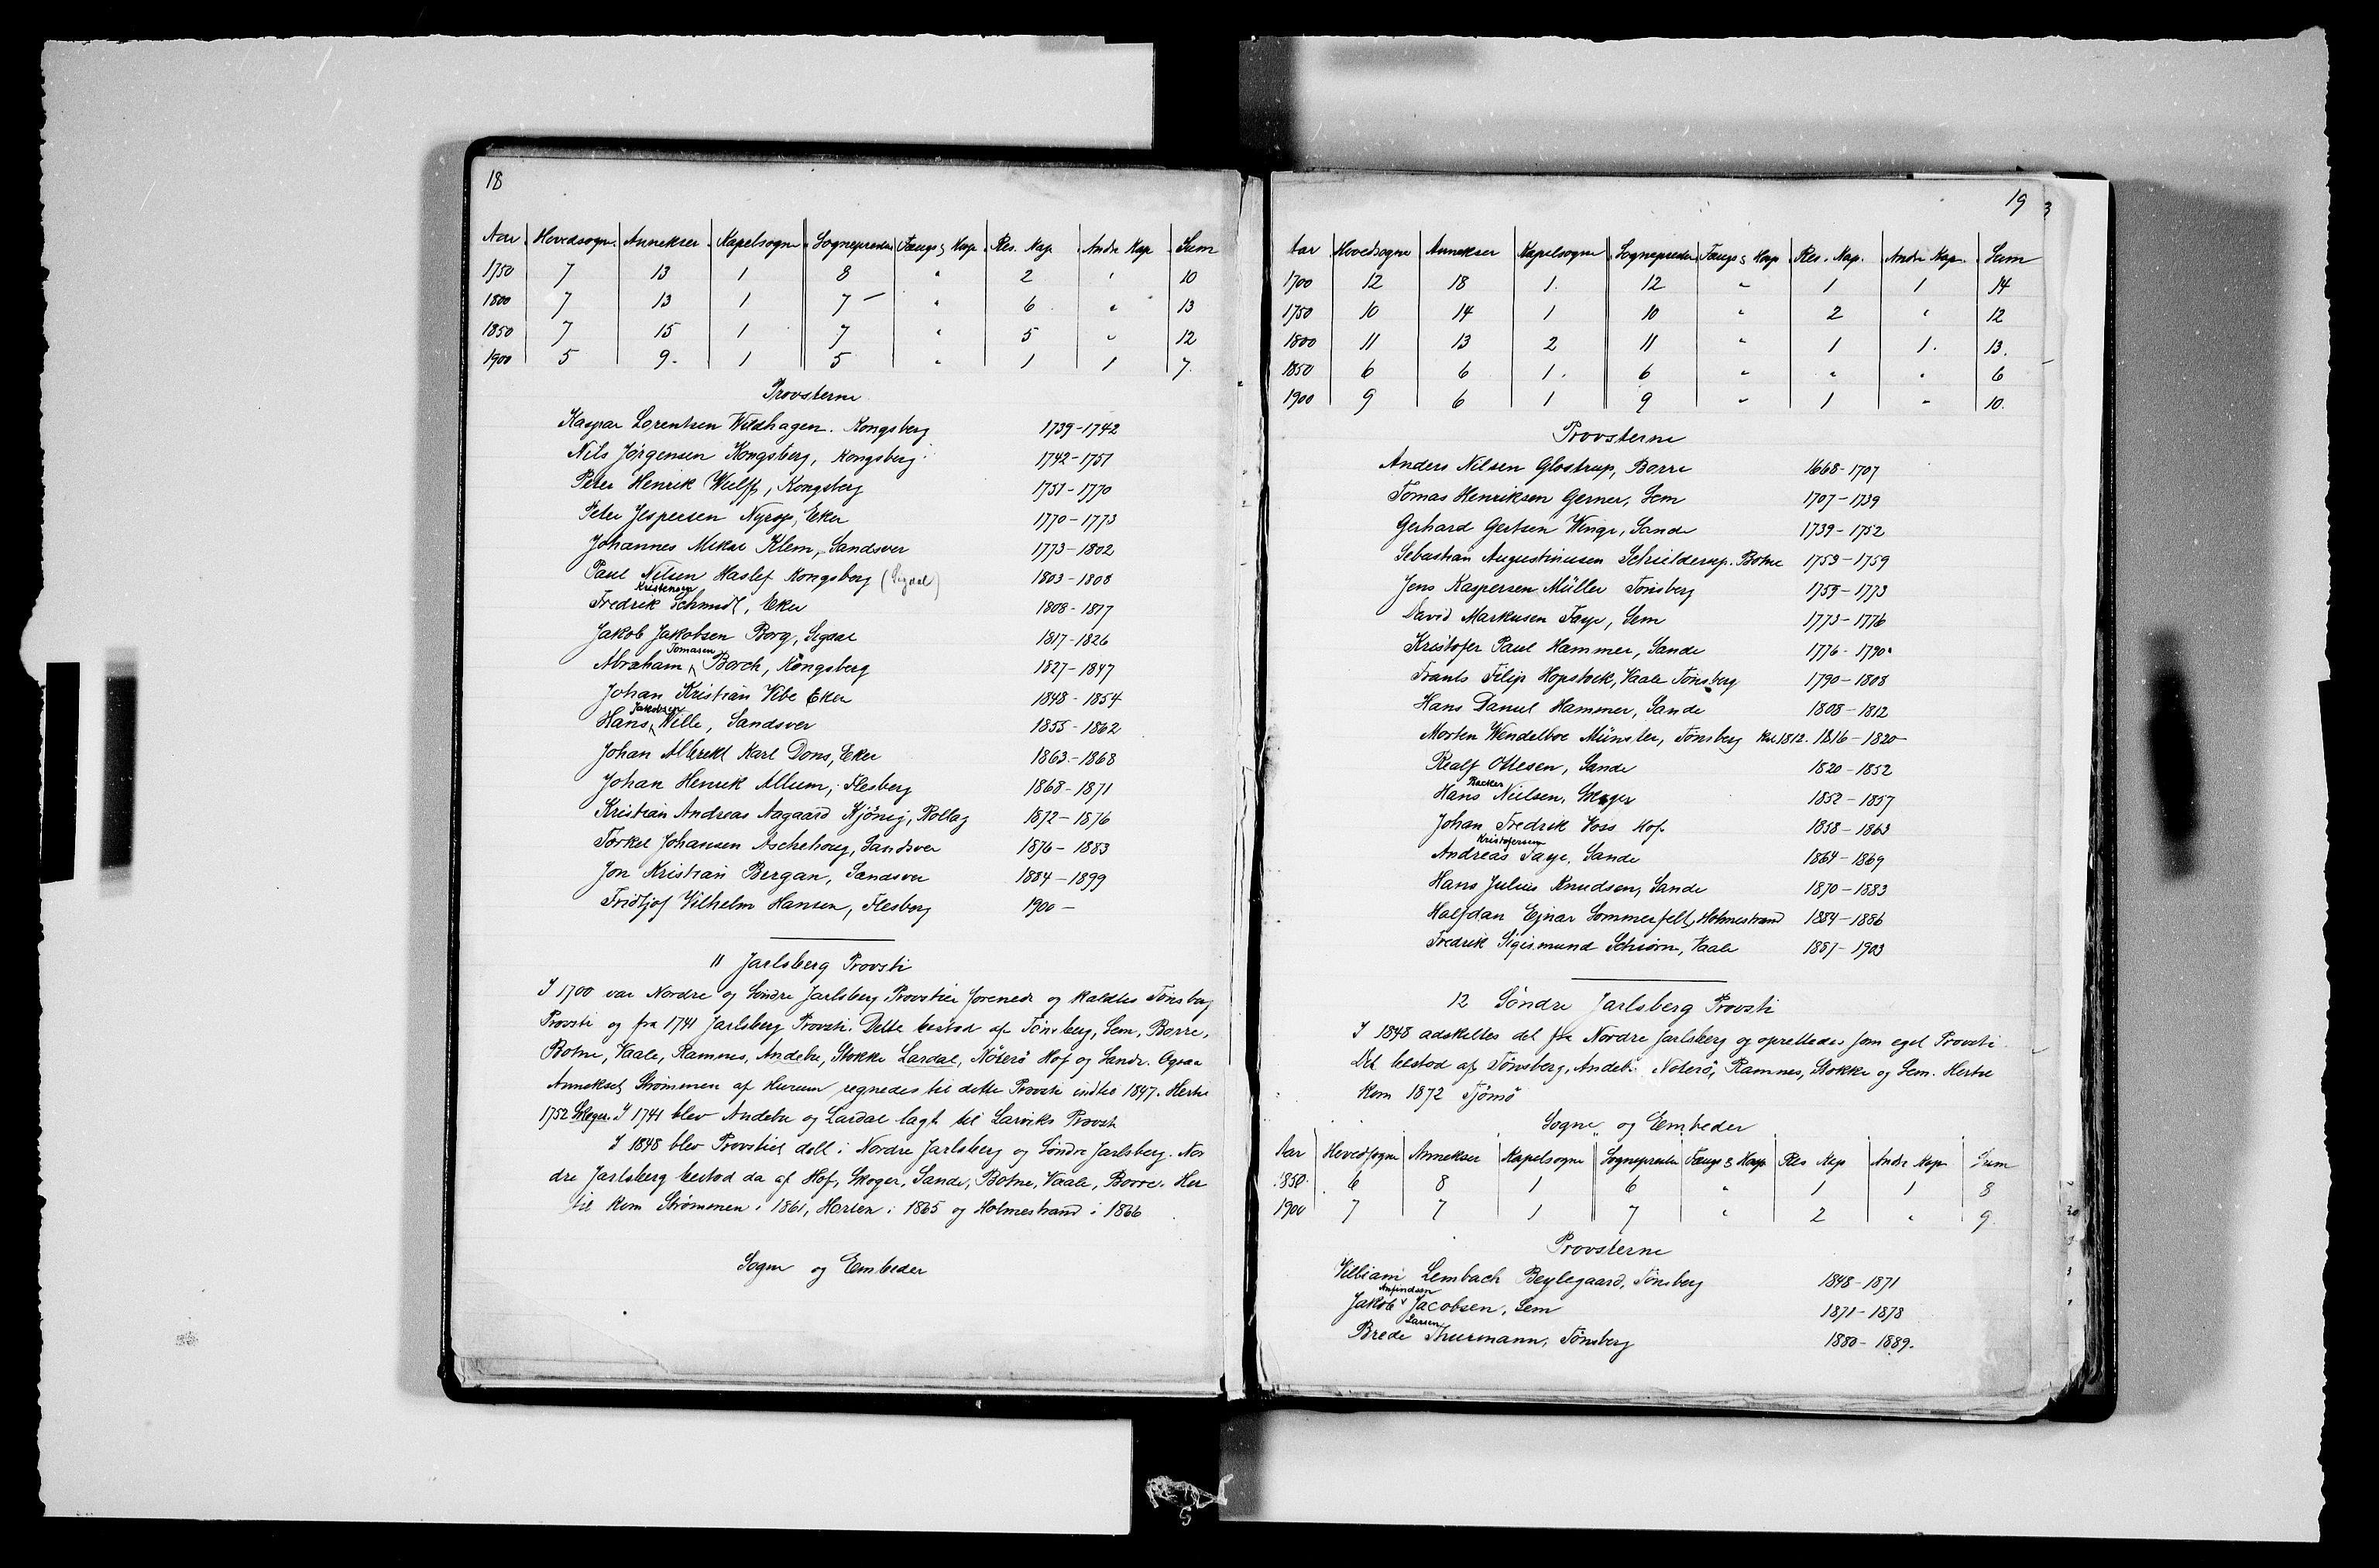 18
Aar Hovedsogne Annekser Kapelsogne Sogneprester Fængs & Hosp Res. Kap Andre Kap Sum
1750 7 13 1 8 " 2 " 10
1800 7 13 1 7 " 6 " 13
1850 7 15 1 7 " 5 " 12
1900 5 9 1 5 " 1 1 7
Provsterne
Kaspar Lorentsen Wildhagen. Kongsberg 1739-1742
Nils Jörgensen Kongsberg, Kongsberg 1742-1751
Peter Henrik Wulff, Kongsberg 1751-1770
Peter Jespersen Nyrop, Eker 1770-1773
Johannes Mikal Klem, Sandsver 1773-1802
Paul Nilsen Haslef Kongsberg (Sigdal) 1803-1808
Kristensen
Fredrik Schmidt, Eker 1808-1817
Jakob Jakobsen Borg, Sigdal 1817-1826
Tomasen
Abraham Borch, Kongsberg 1827-1847
Johan Kristian Vibe Eker 1848-1854
Jakobsen
Hans Wille, Sandsver 1855-1862
Johan Albrekt Karl Dons, Eker 1863-1868
Johan Henrik Allum, Flesberg 1868-1871
Kristian Andreas Aagaard Kjönig, Rollag 1872-1876
Torkel Johansen Aschehoug, Sandsver 1876-1883
Jon Kristian Bergan, Sandsver 1884-1899
Fridtjof Vilhelm Hansen, Flesberg 1900-
11 Jarlsberg Provsti
I 1700 var Nordre og Söndre Jarlsberg Provstier forenede og kaldtes Tönsberg
Provsti og fra 1741 Jarlsberg Provsti. Dette bestod af Tönsberg, Sem, Borre,
Botne, Vaale, Ramnes, Andebu, Stokke Lardal, Nöterö Hof og Sande. Ogsaa
Annekset Strömmen af Hurum regnedes til dette Provsti indtil 1847. Hertil
1752 Skoger. I 1741 blev Andebu og Lardal lagt til Larviks Provsti
I 1848 blev Provstiet delt i Nordre Jarlsberg og Söndre Jarlsberg. Nor
dre Jarlsberg bestod da af Hof, Skoger, Sande, Botne, Vaale, Borre. Her
til kom Strömmen i 1861, Horten i 1865 og Holmestrand i 1866
Sogne og Embeder
19
Aar Hovedsogne Annekser Kapelsogne Sogneprester Fængs & Hosp Res. Kap. Andre Kap. Sum
1700 12 18 1 12 " 1 1 14
1750 10 14 1 10 " 2 " 12
1800 11 13 2 11 " 1 1. 13.
1850 6 6 1. 6 " " " 6
1900 9 6 1 9 " 1 " 10.
Provsterne
Anders Nilsen Glostrup, Borre 1668-1707
Tomas Henriksen Gerner, Sem 1707-1739
Gerhard Gertsen Winge, Sande 1739-1752
Sebastian Augustinusen Schielderup. Botne 1753-1759
Jens Kaspersen Müller Tönsberg 1759-1773
David Markusen Faye, Sem 1773-1776
Kristofer Paul Hammer, Sande 1776-1790
Frants Filip Hopstock, Vaale Tönsberg 1790-1808
Hans Daniel Hammer, Sande 1808-1812
Morten Wendelboe Münster, Tönsberg Kst 1812. 1816-1820
Realf Ottesen, Sande 1820-1852
Backer
Hans Nielsen, Skoger 1852-1857
Johan Fredrik Voss Hof 1858-1863
Kristofersen
Andreas Faye, Sande 1864-1869
Hans Julius Knudsen, Sande 1870-1883
Halfdan Ejnar Sommerfelt, Holmestrand 1884-1886
Fredrik Sigismund Schiörn, Vaale 1887-1903
12 Söndre Jarlsberg Provsti
I 1848 adskiltes det fra Nordre Jarlsberg og oprettedes som eget Provsti
Det bestod af Tönsberg, Andebu Nöterö, Ramnes, Stokke og Sem. Hertil
kom 1872 Tjömö
Sogne og Embeder
Aar Hovedsogne Annekser Kapelsogne Sogneprester Fængs & Hosp Res Kap Andre Kap Sum
1850 6 8 1 6 " 1 1 8
1900 7 7 1 7 " 2 " 9.
Provsterne
Villiam Lembach Beylegaard, Tönsberg 1848-1871
Anfindsen
Jakob Jacobsen, Sem 1871-1878
Larsen
Brede Thurmann, Tönsberg 1880-1889.